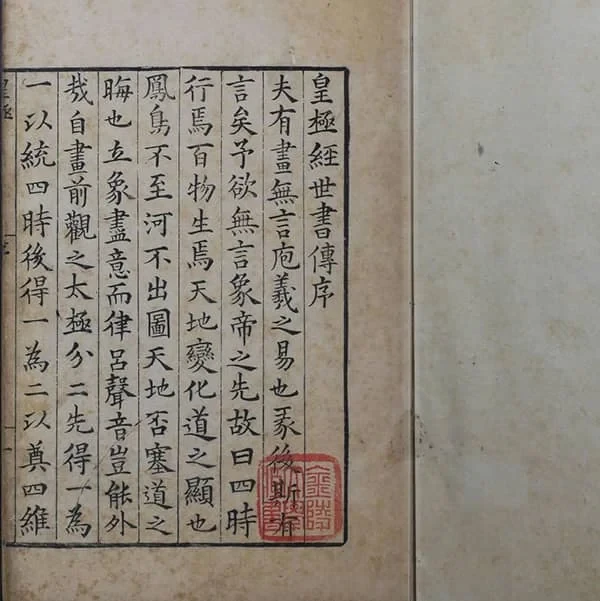 皇極經世書傳序
夫有畫無言庖羲之易也彖後斯有
言矣予欲無言象帝之先故曰四時
行焉百物生焉天地變化道之顯也
鳳鳥不至河不出圖天地否塞道之
晦也立象盡意而律呂聲音豈能外
哉自畫前觀之太極分二先得一為
一以統四時後得一為二以奠四維